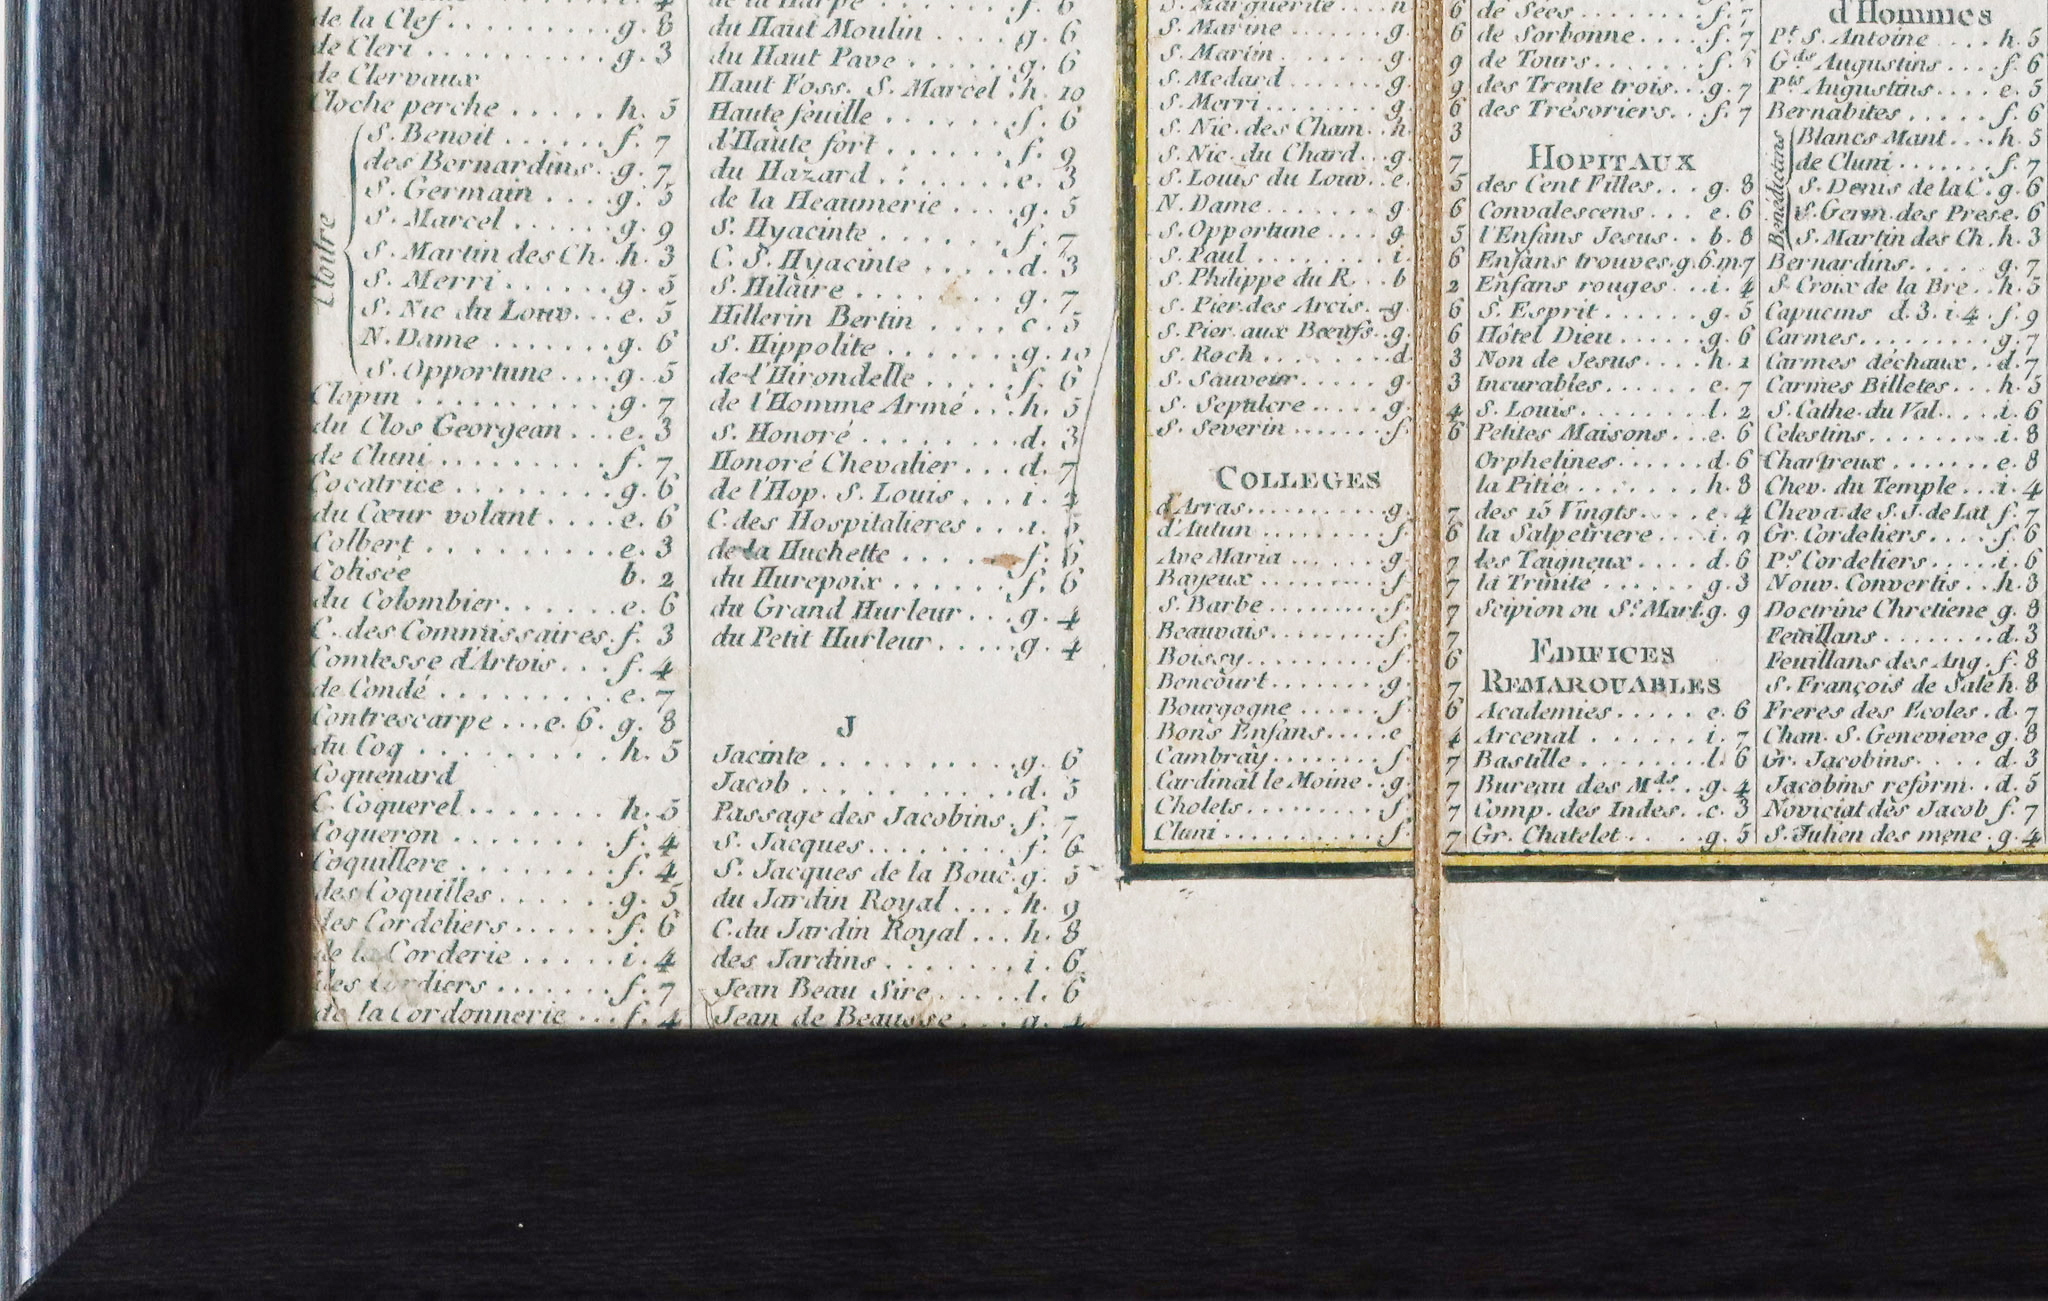 de la Clef . . . . . . . g. 8
de Cleri . . . . . . . . g. 3
de Clervaux
Cloche perche . . . . . h. 5
Cloitre
S. Benoit . . . . . f. 7
des Bernardins . . g. 7
S. Germain . . . . g. 5
S. Marcel . . . . . . g. 9
S. Martin des Ch. h. 3
S. Merri . . . . . . g. 5
S. Nic du Louv. . . e. 5
N. Dame . . . . . . . g. 6
S. Opportune . . . . g. 5
Clopin . . . . . . . . . . g. 7
du Clos Georgean . . . e. 3
de Cluni . . . . . . . . . f. 7
Cocatrice . . . . . . . . g. 6
du Cœur volant . . . . e. 6
Colbert . . . . . . . . . e. 3
Colisée b. 2
du Colombier . . . . . . e. 6
C. des Commissaires. f. 3
Comtesse d'Artois . . . f. 4
de Condé . . . . . . . . . e. 7
Contrescarpe . . . e. 6. g. 8
du Coq . . . . . . . . . h. 5
Coquenard
C. Coquerel . . . . . . . h. 5
Coqueron . . . . . . . . f. 4
Coquillere . . . . . . . . f. 4
des Coquilles . . . . . . g. 5
des Cordeliers . . . . . . f. 6
de la Corderie . . . . . i. 4
des Cordiers . . . . . . . f. 7
de la Cordonnerie . . . f. 4
de la Harpe . . . . . . . f. 6
du Haut Moulin . . . . g. 6
du Haut Pave . . . . . . g. 6
Haut Foss. S. Marcel . h. 10
Haute feuille . . . . . . . f. 6
d'Haute fort . . . . . . f. 9
du Hazard . . . . . . . e. 3
de la Heaumerie . . . . g. 5
S. Hyacinte . . . . . . . f. 7
C. S. Hyacinte . . . . d. 3
S. Hilaire . . . . . . . . g. 7
Hillerin Bertin . . . . c. 5
S. Hippolite . . . . . . . g. 10
de l'Hirondelle . . . . . f. 6
de l'Homme Armé . . . h. 5
S. Honoré . . . . . . . . . d. 3
Honoré Chevalier . . . d. 7
de l'Hop. S. Louis . . . i. 2
C. des Hospitalieres . . . i. 5
de la Huchette . . . . . f. 6
du Hurepoix . . . . . . f. 6
du Grand Hurleur . . . g. 4
du Petit Hurleur . . . . . g. 4
J
Jacinte . . . . . . . . . . g. 6
Jacob . . . . . . . . . . . d. 5
Passage des Jacobins. f. 7
S. Jacques . . . . . . . . f. 6
S. Jacques de la Bouc. g. 5
du Jardin Royal . . . . h. 9
C. du Jardin Royal . . . h. 8
des Jardins . . . . . . . i. 6
Jean Beau Sire . . . . . l. 6
Jean de Beausse . . . g. 4
S. Marguerite . . . . n 6
S. Marine . . . . . . . g. 6
S. Martin . . . . . . . g. 9
S. Medard . . . . . . g. 9
S. Merri . . . . . . . g. 6
S. Nic. des Cham. . h. 3
S. Nic. du Chard. . . g. 7
S. Louis du Louv. . e. 5
N. Dame . . . . . . . g. 6
S. Opportune . . . . g. 5
S. Paul . . . . . . . . i. 6
S. Philippe du R. . . b 2
S. Pier. des Arcis . . g. 6
S. Pier. aux Bœufs. . g. 6
S. Roch . . . . . . . . d. 3
S. Sauveur . . . . . . g. 3
S. Sepulcre . . . . . g. 4
S. Severin . . . . . . . f. 6
COLLEGES
d'Arras . . . . . . . . . g. 7
d'Autun . . . . . . . . . f. 6
Ave Maria . . . . . . . g. 7
Bayeux . . . . . . . . . f. 7
S. Barbe . . . . . . . . f. 7
Beauvais . . . . . . . . f. 7
Boissy . . . . . . . . . . f. 6
Boncourt . . . . . . . . g. 7
Bourgogne . . . . . . . f. 6
Bons Enfans . . . . . e 4
Cambray . . . . . . . . f. 7
Cardinal le Moine . . g. 7
Cholets . . . . . . . . . f. 7
Cluni . . . . . . . . . . . f. 7
de Sées . . . . . . . . f. 7
de Sorbonne . . . . f. 7
de Tours . . . . . . f.
des Trente trois . . g. 7
des Trésoriers . . . f. 7
HOPITAUX
des Cent Filles . . . g. 8
Convalescens . . . e. 6
l'Enfans Jesus . . b. 8
Enfans trouves. g. 6. m. 7
Enfans rouges . . . i. 4
S. Esprit . . . . . . g. 5
Hôtel Dieu . . . . . . g. 6
Non de Jesus . . . . h. 2
Incurables . . . . . . e. 7
S. Louis . . . . . . . l. 2
Petites Maisons . . . e. 6
Orphelines . . . . . . d. 6
la Pitié . . . . . . . . h. 8
des 15 Vingts . . . . e. 4
la Salpetriere . . . i. 9
les Taigneux . . . . d. 6
la Trinité . . . . . . g. 3
Scipion ou Se. Mart. g. 9
EDIFICES
REMARQUABLES
Academies . . . . . e. 6
Arcenal . . . . . . i. 7
Bastille . . . . . . . . l. 6
Bureau des Mds. . . g. 4
Comp. des Indes . . c. 3
Gr. Chatelet . . . . g. 5
d'Hommes
Pt. S. Antoine . . . . h. 5
Gds Augustins . . . . f. 6
Pts Augustins . . . . e. 5
Bernabites . . . . . f. 6
Benedictins
Blancs Mant. . . . h. 5
de Cluni . . . . . . . f. 7
S. Denis de la C. g. 6
S. Germ. des Pres e. 6
S. Martin des Ch. h. 3
Bernardins . . . . . g. 7
S. Croix de la Bre. . h. 5
Capucins d. 3. i. 4. f. 9
Carmes . . . . . . . . . g. 7
Carmes déchaux . . d. 7
Carmes Billetes . . . h. 5
S. Cathe. du Val . . . . i. 6
Celestins . . . . . . . . . i. 8
Chartreux . . . . . . . e. 8
Chev. du Temple . . . i. 4
Cheva. de S. J. de Lat f. 7
Gr. Cordeliers . . . . . f. 6
Ps Cordeliers . . . . . i. 6
Nouv. Convertis . . . h. 3
Doctrine Chretiene g. 8
Feuillans . . . . . . . . d. 3
Feuillans des Ang. f. 8
S. François de Sale h. 8
Freres des Ecoles . d. 7
Chan. S. Genevieve g. 8
Gr. Jacobins . . . . d. 3
Jacobins reform. . d. 5
Noviciat des Jacob f. 7
S. Julien des mene . g. 4